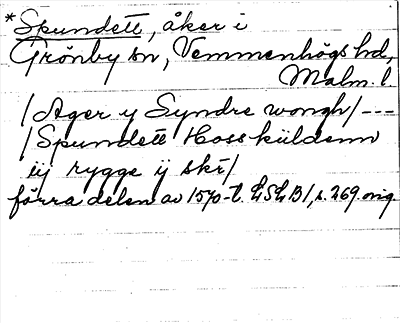 *Spundett, åker i
Grönby sn, Vemmenhögs hd,
Malm. l.
/Ager y Syndre wongh/ ---
/Spundett Hoss küldenn
iij rygge ij skr/
förra delen av 1570-t. LSLB1, s. 269. orig.